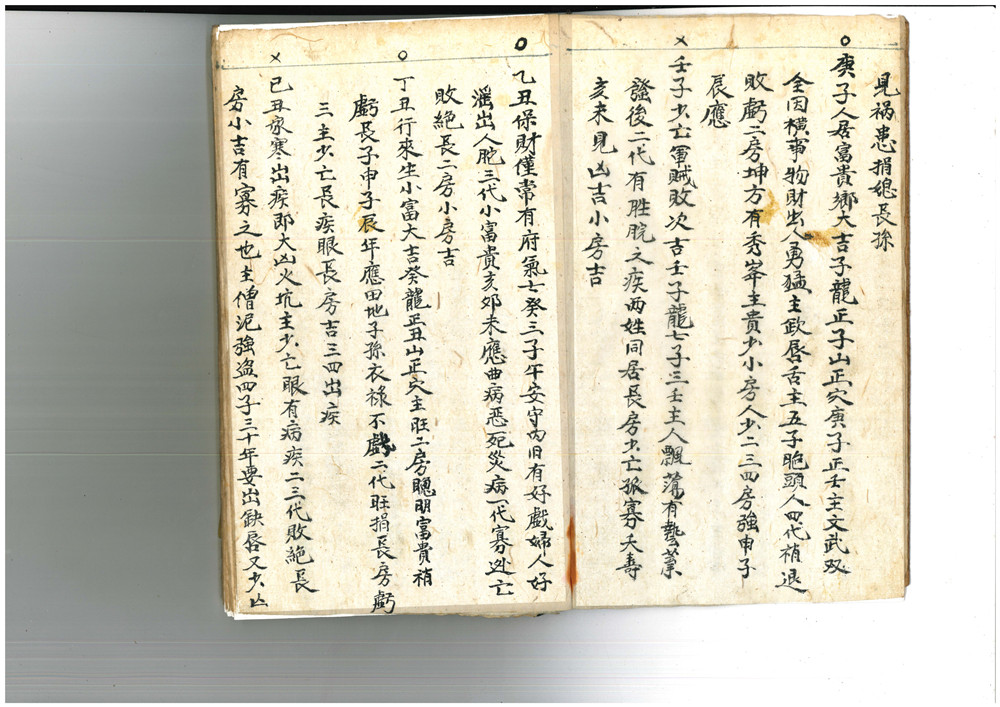 見祸患捐媳長孫
庚子人居富貴鄉大吉子龍正子山正穴庚子正壬主文武双
全因横事物財出人勇猛主欽唇舌主五子胞頭人四代稍退
敗虧二房坤方有秀峯主貴少小房人少二三四房強申子
辰應
壬子少亡軍賊敗次吉壬子龍七子三壬主人飄蕩有藝業
發後二代有胜脘之疾两姓同居長房少亡孤寡夭壽
亥未見凶吉小房吉
乙丑保財僅常有府氣七癸三子午安守内旧有好戯婦人好
滛出人脫三代小富貴亥夘未應曲病恶死災病一代寡迯亡
敗絶長二房小房吉
丁丑行來生小富大吉癸龍正丑山正穴主旺二房聰明富貴稍
虧長子申子辰年應田地子孫衣禄不虧二代旺捐長房虧
三主少亡長疾眼長房吉三四出疾
己丑家寒出疾即大凶火坑主少亡眼有病疾二三代敗絶長
房小吉有寡之也主僧泥強盗四子三十年要出缺唇又少凶